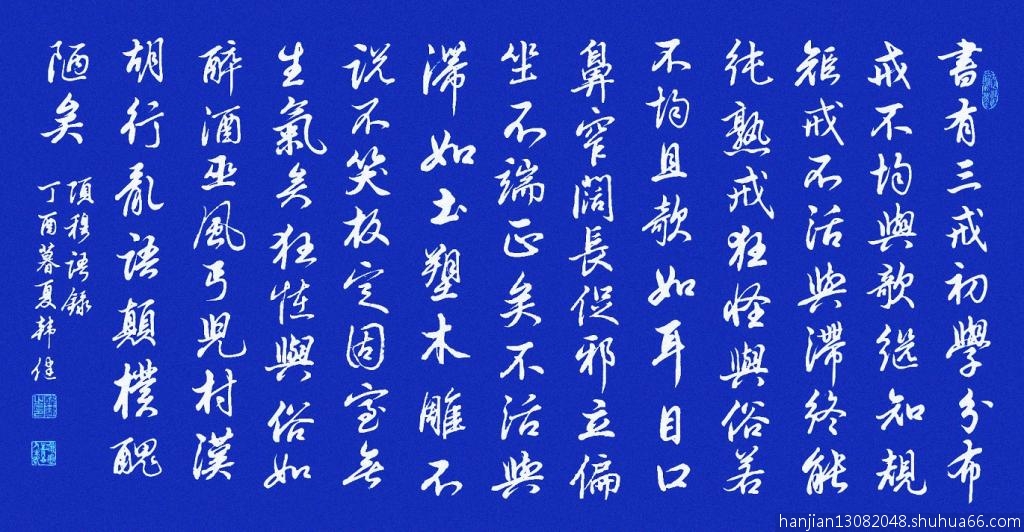 書有三戒初學分布
戒不均與欹継知規
矩戒不活與滯終能
純熟戒狂怪與俗若
不均且欹如耳目口
鼻窄闊長促邪立偏
坐不端正矣不活與
滯如土塑木雕不
説不笑板定固窒无
生氣矣狂恠與俗如
醉酒巫風丐兒村漢
胡行亂語顛樸醜
陋矣
項穆語錄
丁酉暮夏韩健
hanjian13082048.shuhua66.com